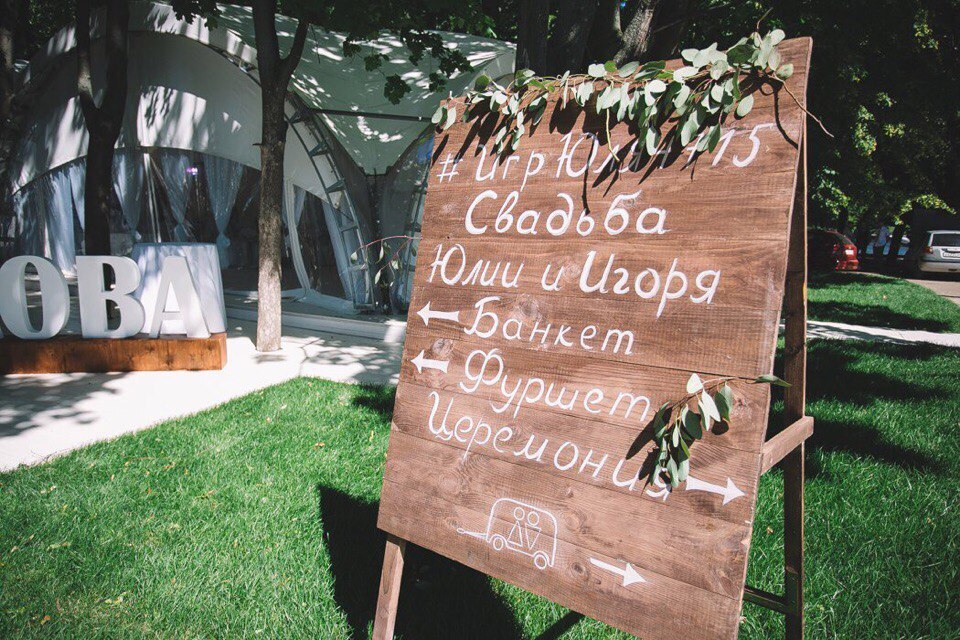 ОВА
Свадьба
Юлии и Игоря
Банкет
Фуршет
Церемония